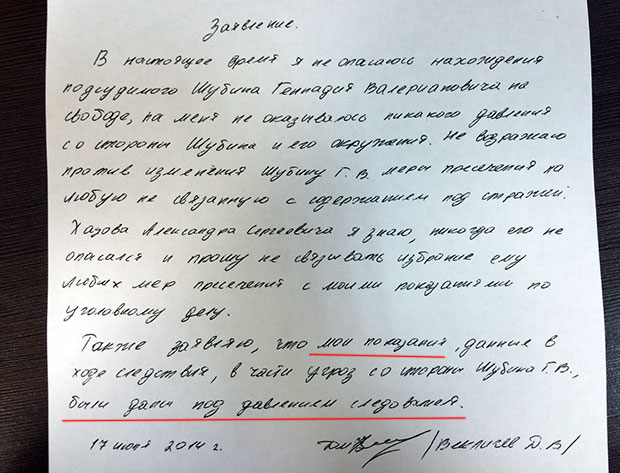 Заявление.
В настоящее время я не опасаюсь нахождения
подсудимого Шубина Геннадия Валериановича на
свободе, на меня не оказывалось никакого давления
со стороны Шубина и его окружения. Не возражаю
против изменения Шубину Г.В. меры пресечения на
любую не связанную с содержанием под стражей.
Хазова Александра Сергеевича я знаю, никогда его не
опасался и прошу не связывать избрание ему
любых мер пресечения с моими показаниями по
уголовному делу.
Также заявляю, что мои показания, данные в
ходе следствия, в части угроз со стороны Шубина Г.В.,
были даны под давлением следователя.
2014 г. /Векличев Д.В/